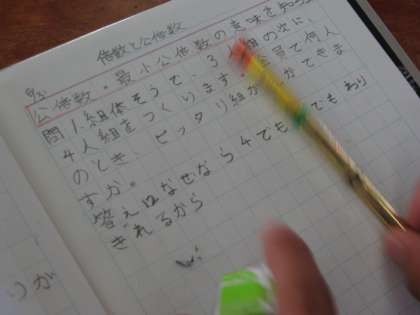 倍数と公倍数
公倍数・最小公倍数の意味を知ろう
問1.組体そうで、3人組の次に、
4人組をつくります。全員で何人
のとき、ピッタリ組ができま
すか。
答え12なぜなら4でも3でもわり
きれるから